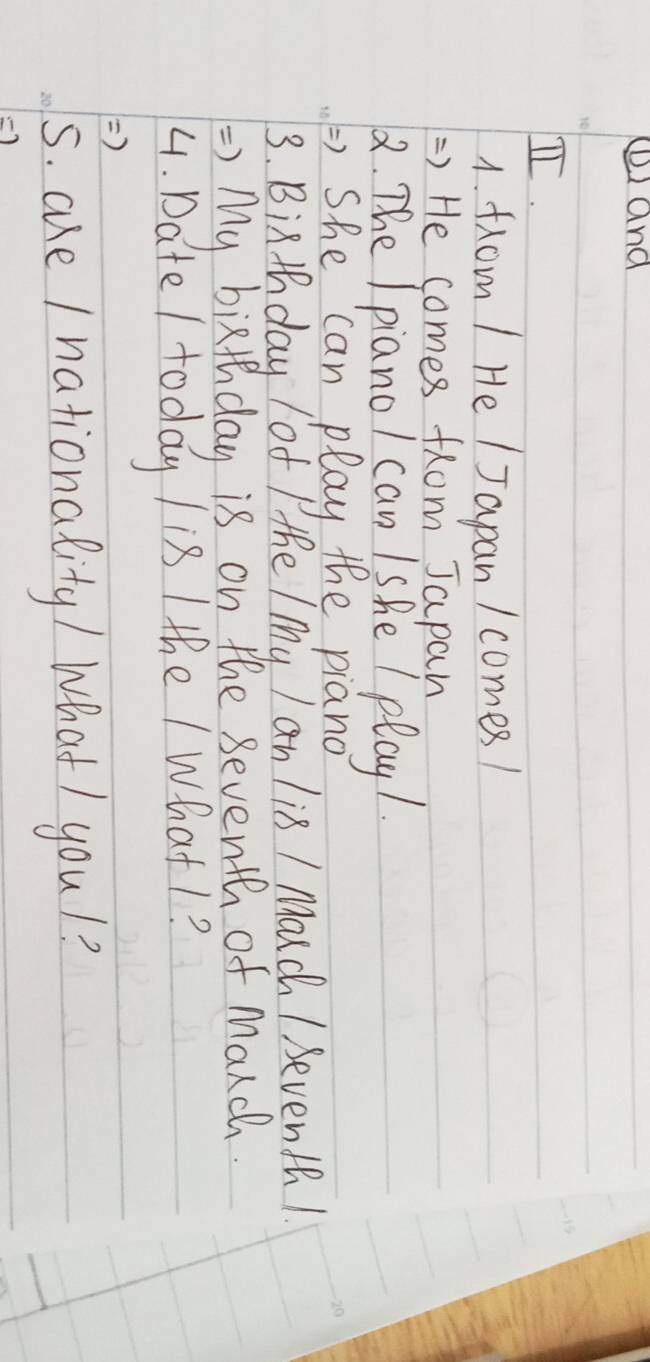 (1) and
II.
1. from / He / Japan / comes /
=> He comes from Japan
2. The / piano / can / she / play /.
=> She can play the piano
3. Birthday / of / the / My / on / is / March / seventh /.
=> My birthday is on the seventh of March.
4. Date / today / is / the / What / ?
=>
5. are / nationality / What / you / ?
=>